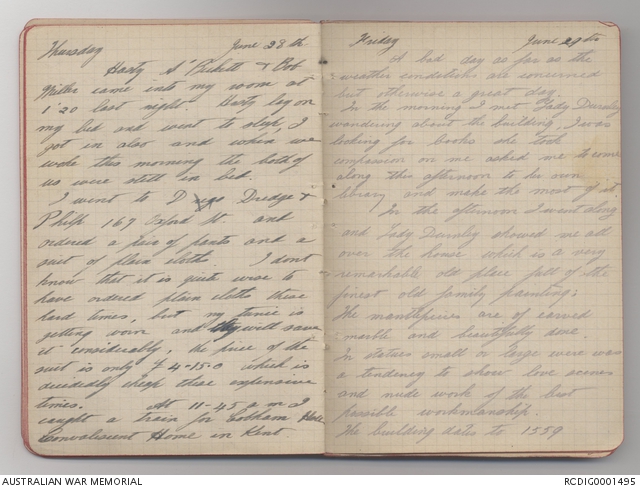 Thursday June 28th
Harty A' Beckett & Bob
Miller came into my room at
1'20 last night Harty lay on
my bed and went to sleep, I
got in also and when we
woke this morning the both of
us were still in bed.
I went to Dredge &
Phelp 167 Oxford St and
ordered a pair of pants and a
suit of plain cloths. I dont
know that it is quite wise to
have ordered plain cloths these
hard times, but my tunic is
getting worn and they will save
it considerably, the price of the
suit is only £4-15-0 which is
decidedly cheap these expensive
times. At 11-45 a m I
caught a train for Cobham Hall
Convalescent Home in Kent.
Friday June 29th
A bad day as far as the
weather conditions are concerned
but otherwise a great day.
In the morning I met Lady Darnley
wandering about the building, I was
looking for books she took
compassion on me asked me to come
along this afternoon to her own
library and make the most of it.
In the afternoon I went along
and Lady Darnley showed me all
over the house which is a very
remarkable old place full of the
finest old family paintings:
The mantelpieces are of carved
marble and beautifully done.
In statues small or large there was
a tendency to show love scenes
and nude work of the best
possible workmanship.
The building dates to 1559
AUSTRALIAN WAR MEMORIAL RCDIG0001495